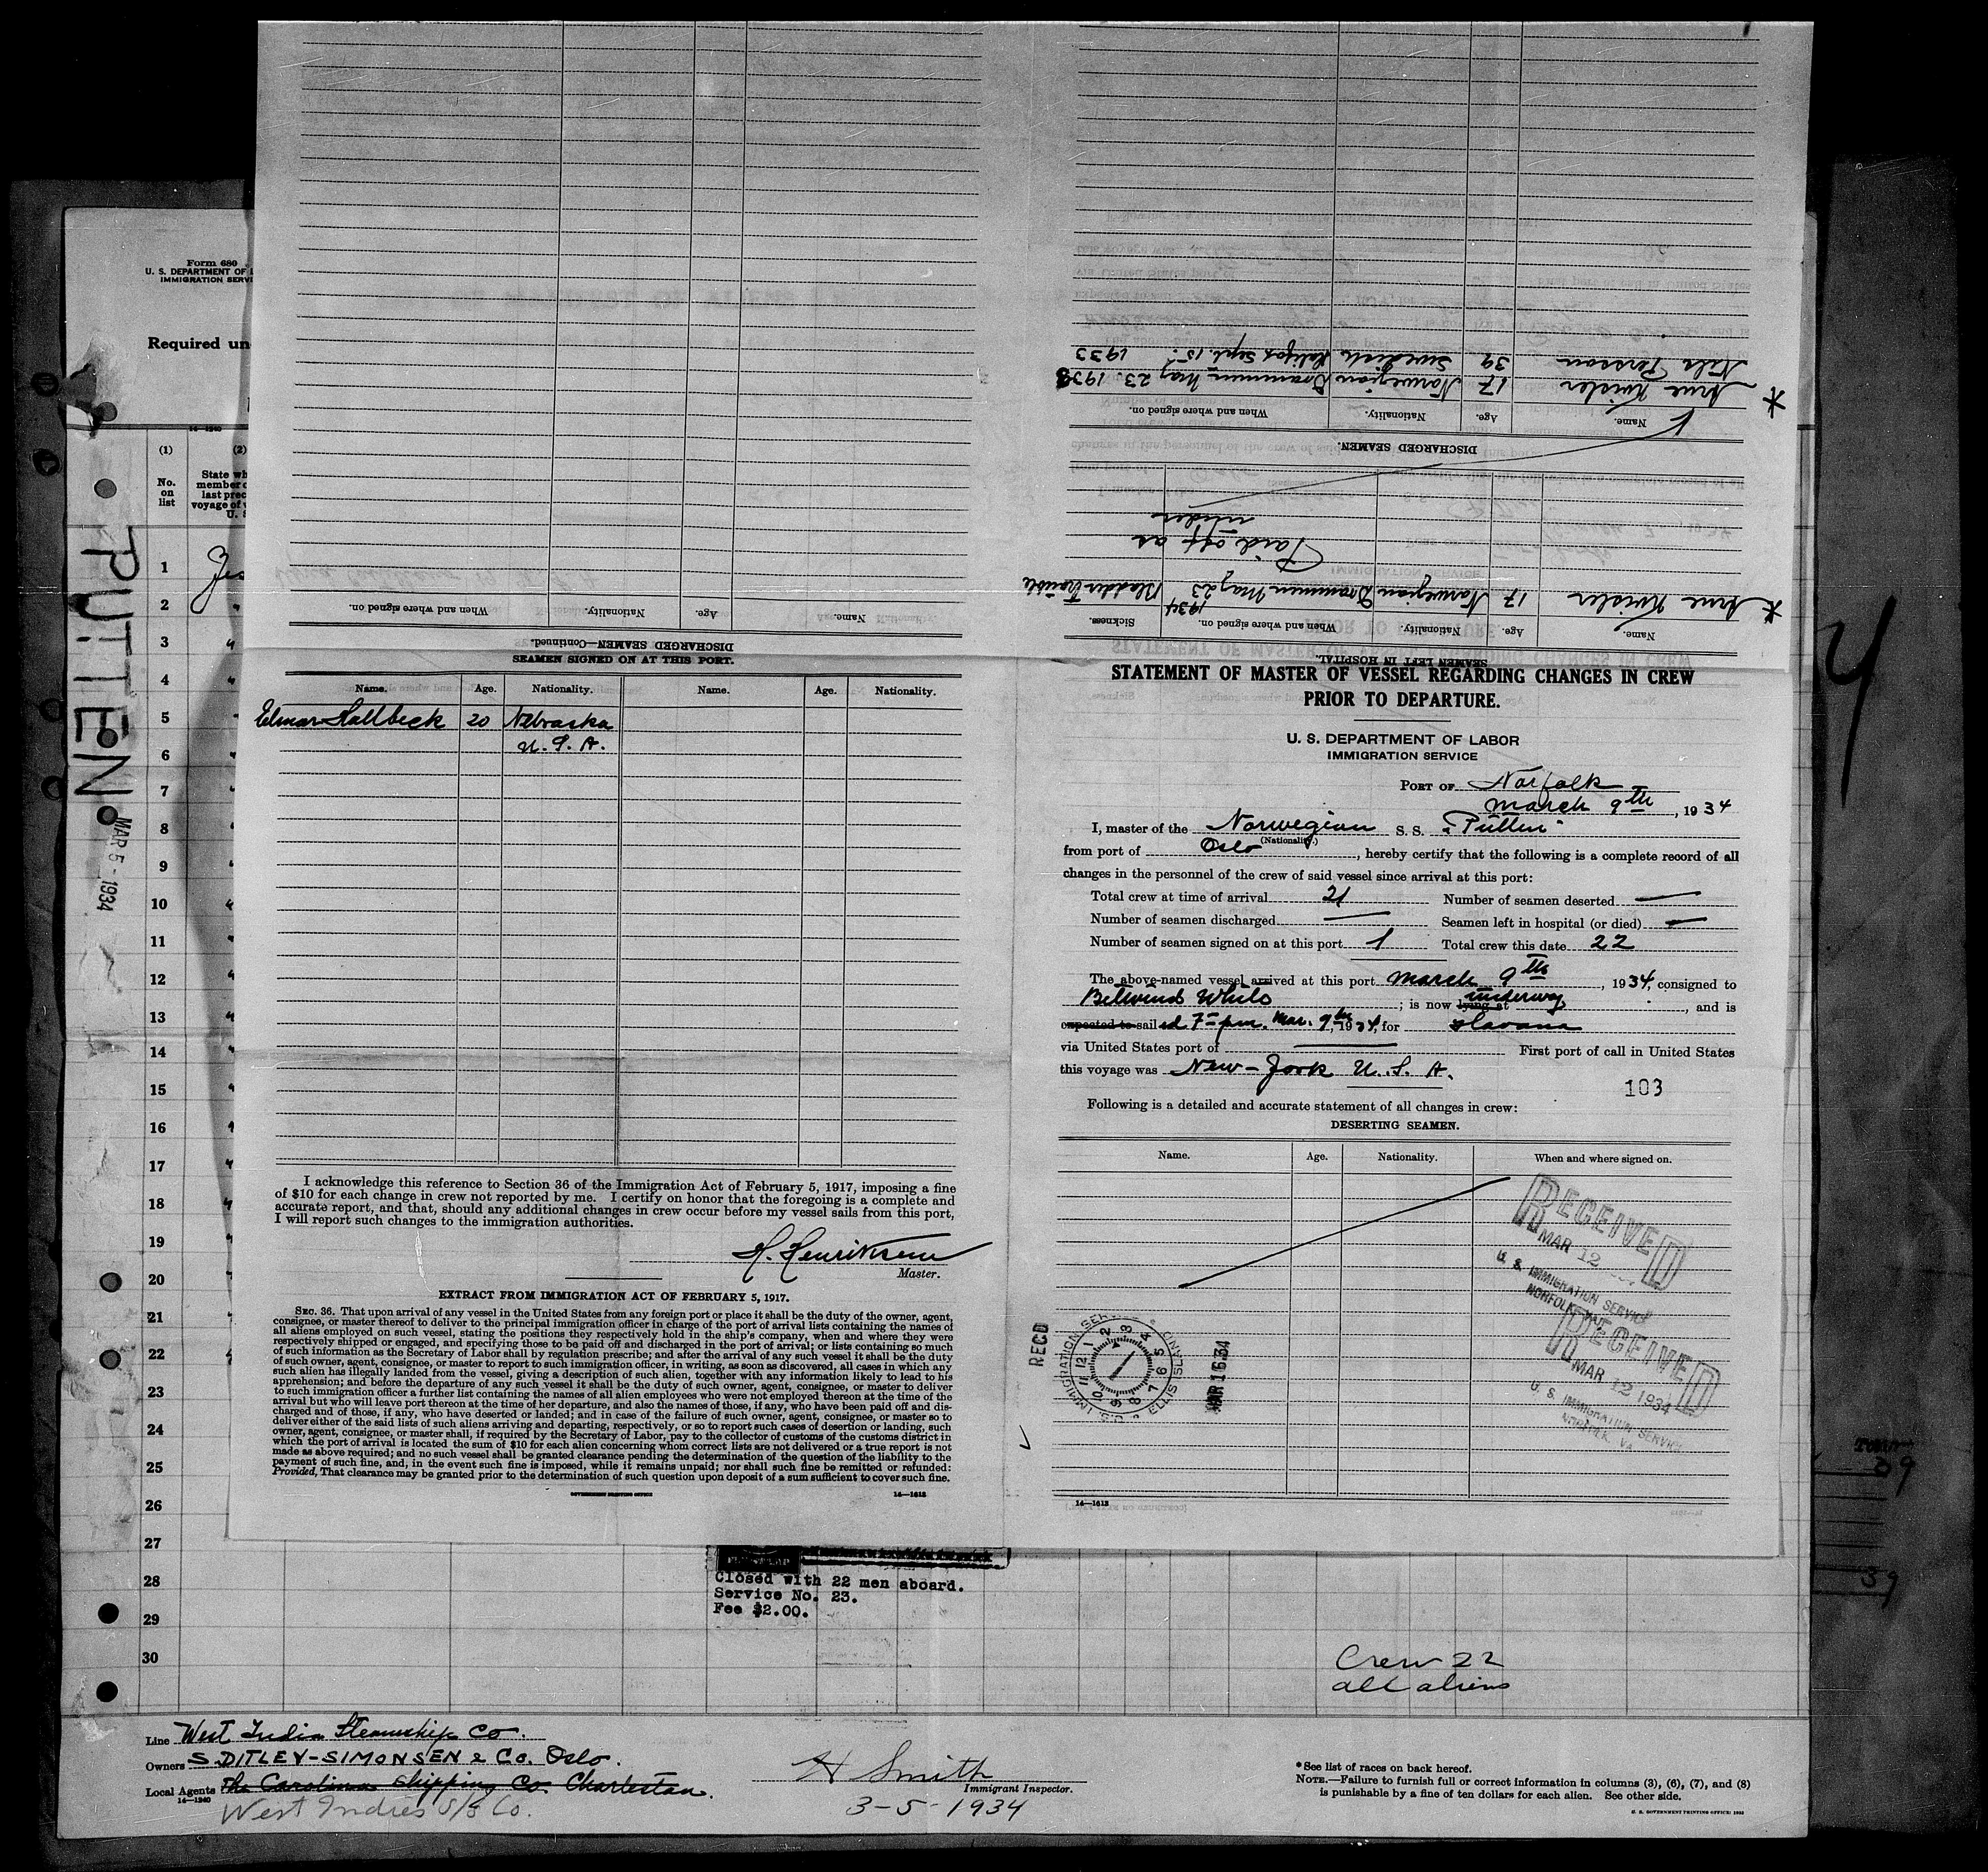 Form 680
U. S. DEPARTMENT OF
IMMIGRATION SERVI
Required un
14—1240
(1)
(2)
No.
on
list
State wh
member o
last prec
voyage of v
U. S
PUTTEN
MAR 5 - 1934
1
2
3
4
5
6
7
8
9
10
11
12
13
14
15
16
17
18
19
20
21
22
23
24
25
26
27
28
29
30
Yes
DISCHARGED SEAMEN—Continued.
Name. Age. Nationality. When and where signed on.
SEAMEN LEFT IN HOSPITAL.
Name. Age. Nationality. When and where signed on. Sickness.
* Arne Kvisler 17 Norwegian Drammen May 23 1934 Bladder Trouble
Paid off as
under
DISCHARGED SEAMEN.
Name. Age. Nationality. When and where signed on.
* Arne Kvisler 17 Norwegian Drammen May 23. 1933
Nils Persson 39 Swedish Halifax Sept. 15. 1933
SEAMEN SIGNED ON AT THIS PORT.
Name. Age. Nationality. Name. Age. Nationality.
Elmar Hallbeck 20 Nebraska
U. S. A.
I acknowledge this reference to Section 36 of the Immigration Act of February 5, 1917, imposing a fine
of $10 for each change in crew not reported by me. I certify on honor that the foregoing is a complete and
accurate report, and that, should any additional changes in crew occur before my vessel sails from this port,
I will report such changes to the immigration authorities.
H. Henriksen
Master.
EXTRACT FROM IMMIGRATION ACT OF FEBRUARY 5, 1917.
SEC. 36. That upon arrival of any vessel in the United States from any foreign port or place it shall be the duty of the owner, agent,
consignee, or master thereof to deliver to the principal immigration officer in charge of the port of arrival lists containing the names of
all aliens employed on such vessel, stating the positions they respectively hold in the ship's company, when and where they were
respectively shipped or engaged, and specifying those to be paid off and discharged in the port of arrival; or lists containing so much
of such information as the Secretary of Labor shall by regulation prescribe; and after the arrival of any such vessel it shall be the duty
of such owner, agent, consignee, or master to report to such immigration officer, in writing, as soon as discovered, all cases in which any
such alien has illegally landed from the vessel, giving a description of such alien, together with any information likely to lead to his
apprehension; and before the departure of any such vessel it shall be the duty of such owner, agent, consignee, or master to deliver
to such immigration officer a further list containing the names of all alien employees who were not employed thereon at the time of the
arrival but who will leave port thereon at the time of her departure, and also the names of those, if any, who have been paid off and dis-
charged and of those, if any, who have deserted or landed; and in case of the failure of such owner, agent, consignee, or master so to
deliver either of the said lists of such aliens arriving and departing, respectively, or so to report such cases of desertion or landing, such
owner, agent, consignee, or master, shall, if required by the Secretary of Labor, pay to the collector of customs of the customs district in
which the port of arrival is located the sum of $10 for each alien concerning whom correct lists are not delivered or a true report is not
made as above required; and no such vessel shall be granted clearance pending the determination of the question of the liability to the
payment of such fine, and, in the event such fine is imposed, while it remains unpaid; nor shall such fine be remitted or refunded:
Provided, That clearance may be granted prior to the determination of such question upon deposit of a sum sufficient to cover such fine.
GOVERNMENT PRINTING OFFICE
14—1613
STATEMENT OF MASTER OF VESSEL REGARDING CHANGES IN CREW
PRIOR TO DEPARTURE.
U. S. DEPARTMENT OF LABOR
IMMIGRATION SERVICE
PORT OF Norfolk
March 9th, 1934
I, master of the Norwegian S. S. "Putten"
(Nationality.)
from port of Oslo, hereby certify that the following is a complete record of all
changes in the personnel of the crew of said vessel since arrival at this port:
Total crew at time of arrival 21 Number of seamen deserted —
Number of seamen discharged — Seamen left in hospital (or died) —
Number of seamen signed on at this port 1 Total crew this date 22
The above-named vessel arrived at this port March 9th, 1934, consigned to
; is now lying at underway, and is
expected to sail ed 7 pm. Mar. 9th, 1934, for Havana
via United States port of — First port of call in United States
this voyage was New-York U. S. A.
103
Following is a detailed and accurate statement of all changes in crew:
DESERTING SEAMEN.
Name. Age. Nationality. When and where signed on.
RECEIVED
MAR 12
U. S. IMMIGRATION SERVICE
NORFOLK, VA.
RECEIVED
MAR 12 1934
U. S. IMMIGRATION SERVICE
NORFOLK, VA.
RECD
U.S. IMMIGRATION SERVICE ELLIS ISLAND
1 2 3 4 5 6 7 8 9 10 11 12
MAR 16 34
14—1613
Closed with 22 men aboard.
Service No. 23.
Fee $2.00.
Crew 22
all aliens
Line West India Steamship Co.
Owners S. DITLEV-SIMONSEN & Co. Oslo.
Local Agents The Carolina Shipping Co. Charleston.
14—1240
West Indies S/S Co.
H Smith
Immigrant Inspector.
3-5-1934
* See list of races on back hereof.
NOTE.—Failure to furnish full or correct information in columns (3), (6), (7), and (8)
is punishable by a fine of ten dollars for each alien. See other side.
U. S. GOVERNMENT PRINTING OFFICE: 1932
4
39
39